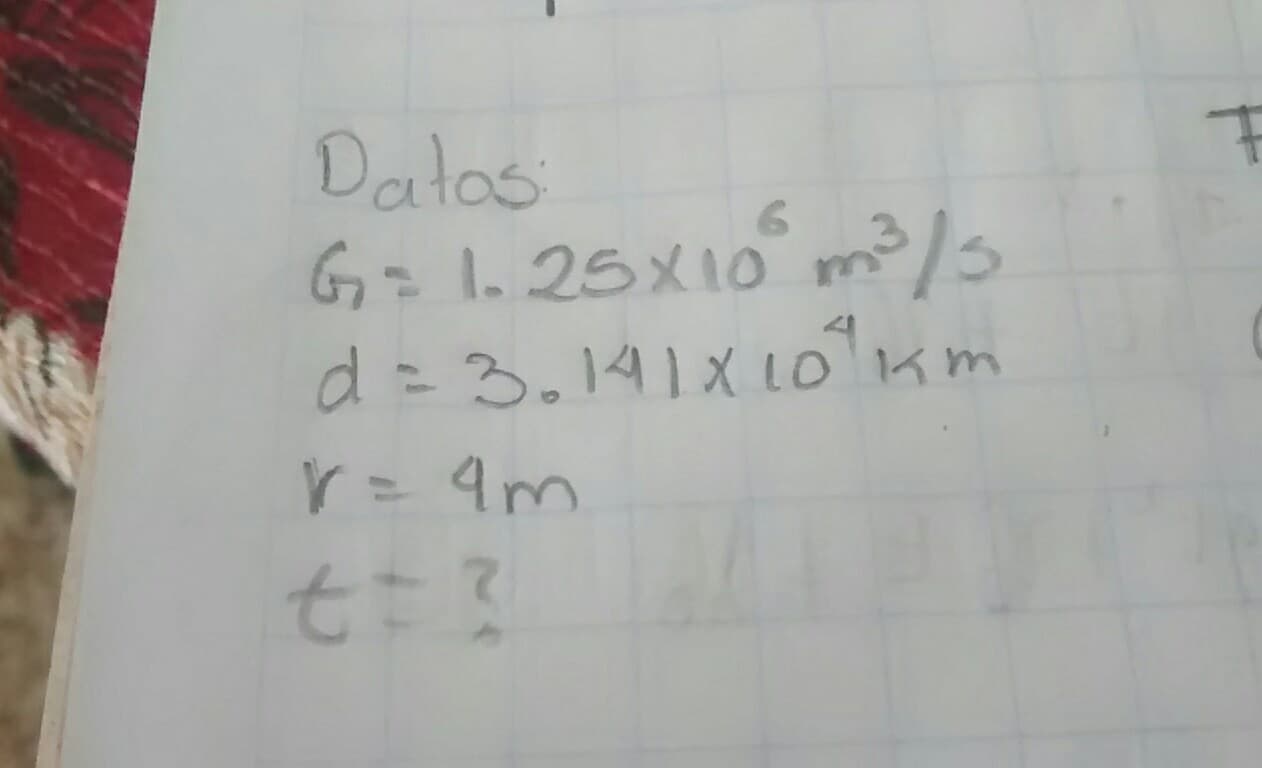 Datos:
G = 1.25x10⁶ m³/s
d = 3.141x10⁴ Km
r = 4m
t = ?